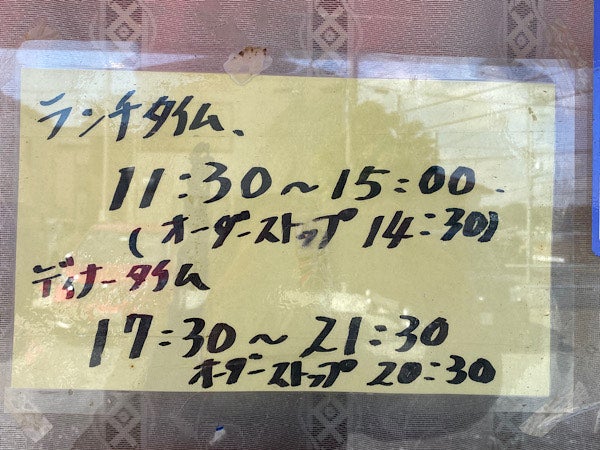 ランチタイム、
11:30〜15:00
(オーダーストップ 14:30)
ディナータイム
17:30〜21:30
オーダーストップ 20:30